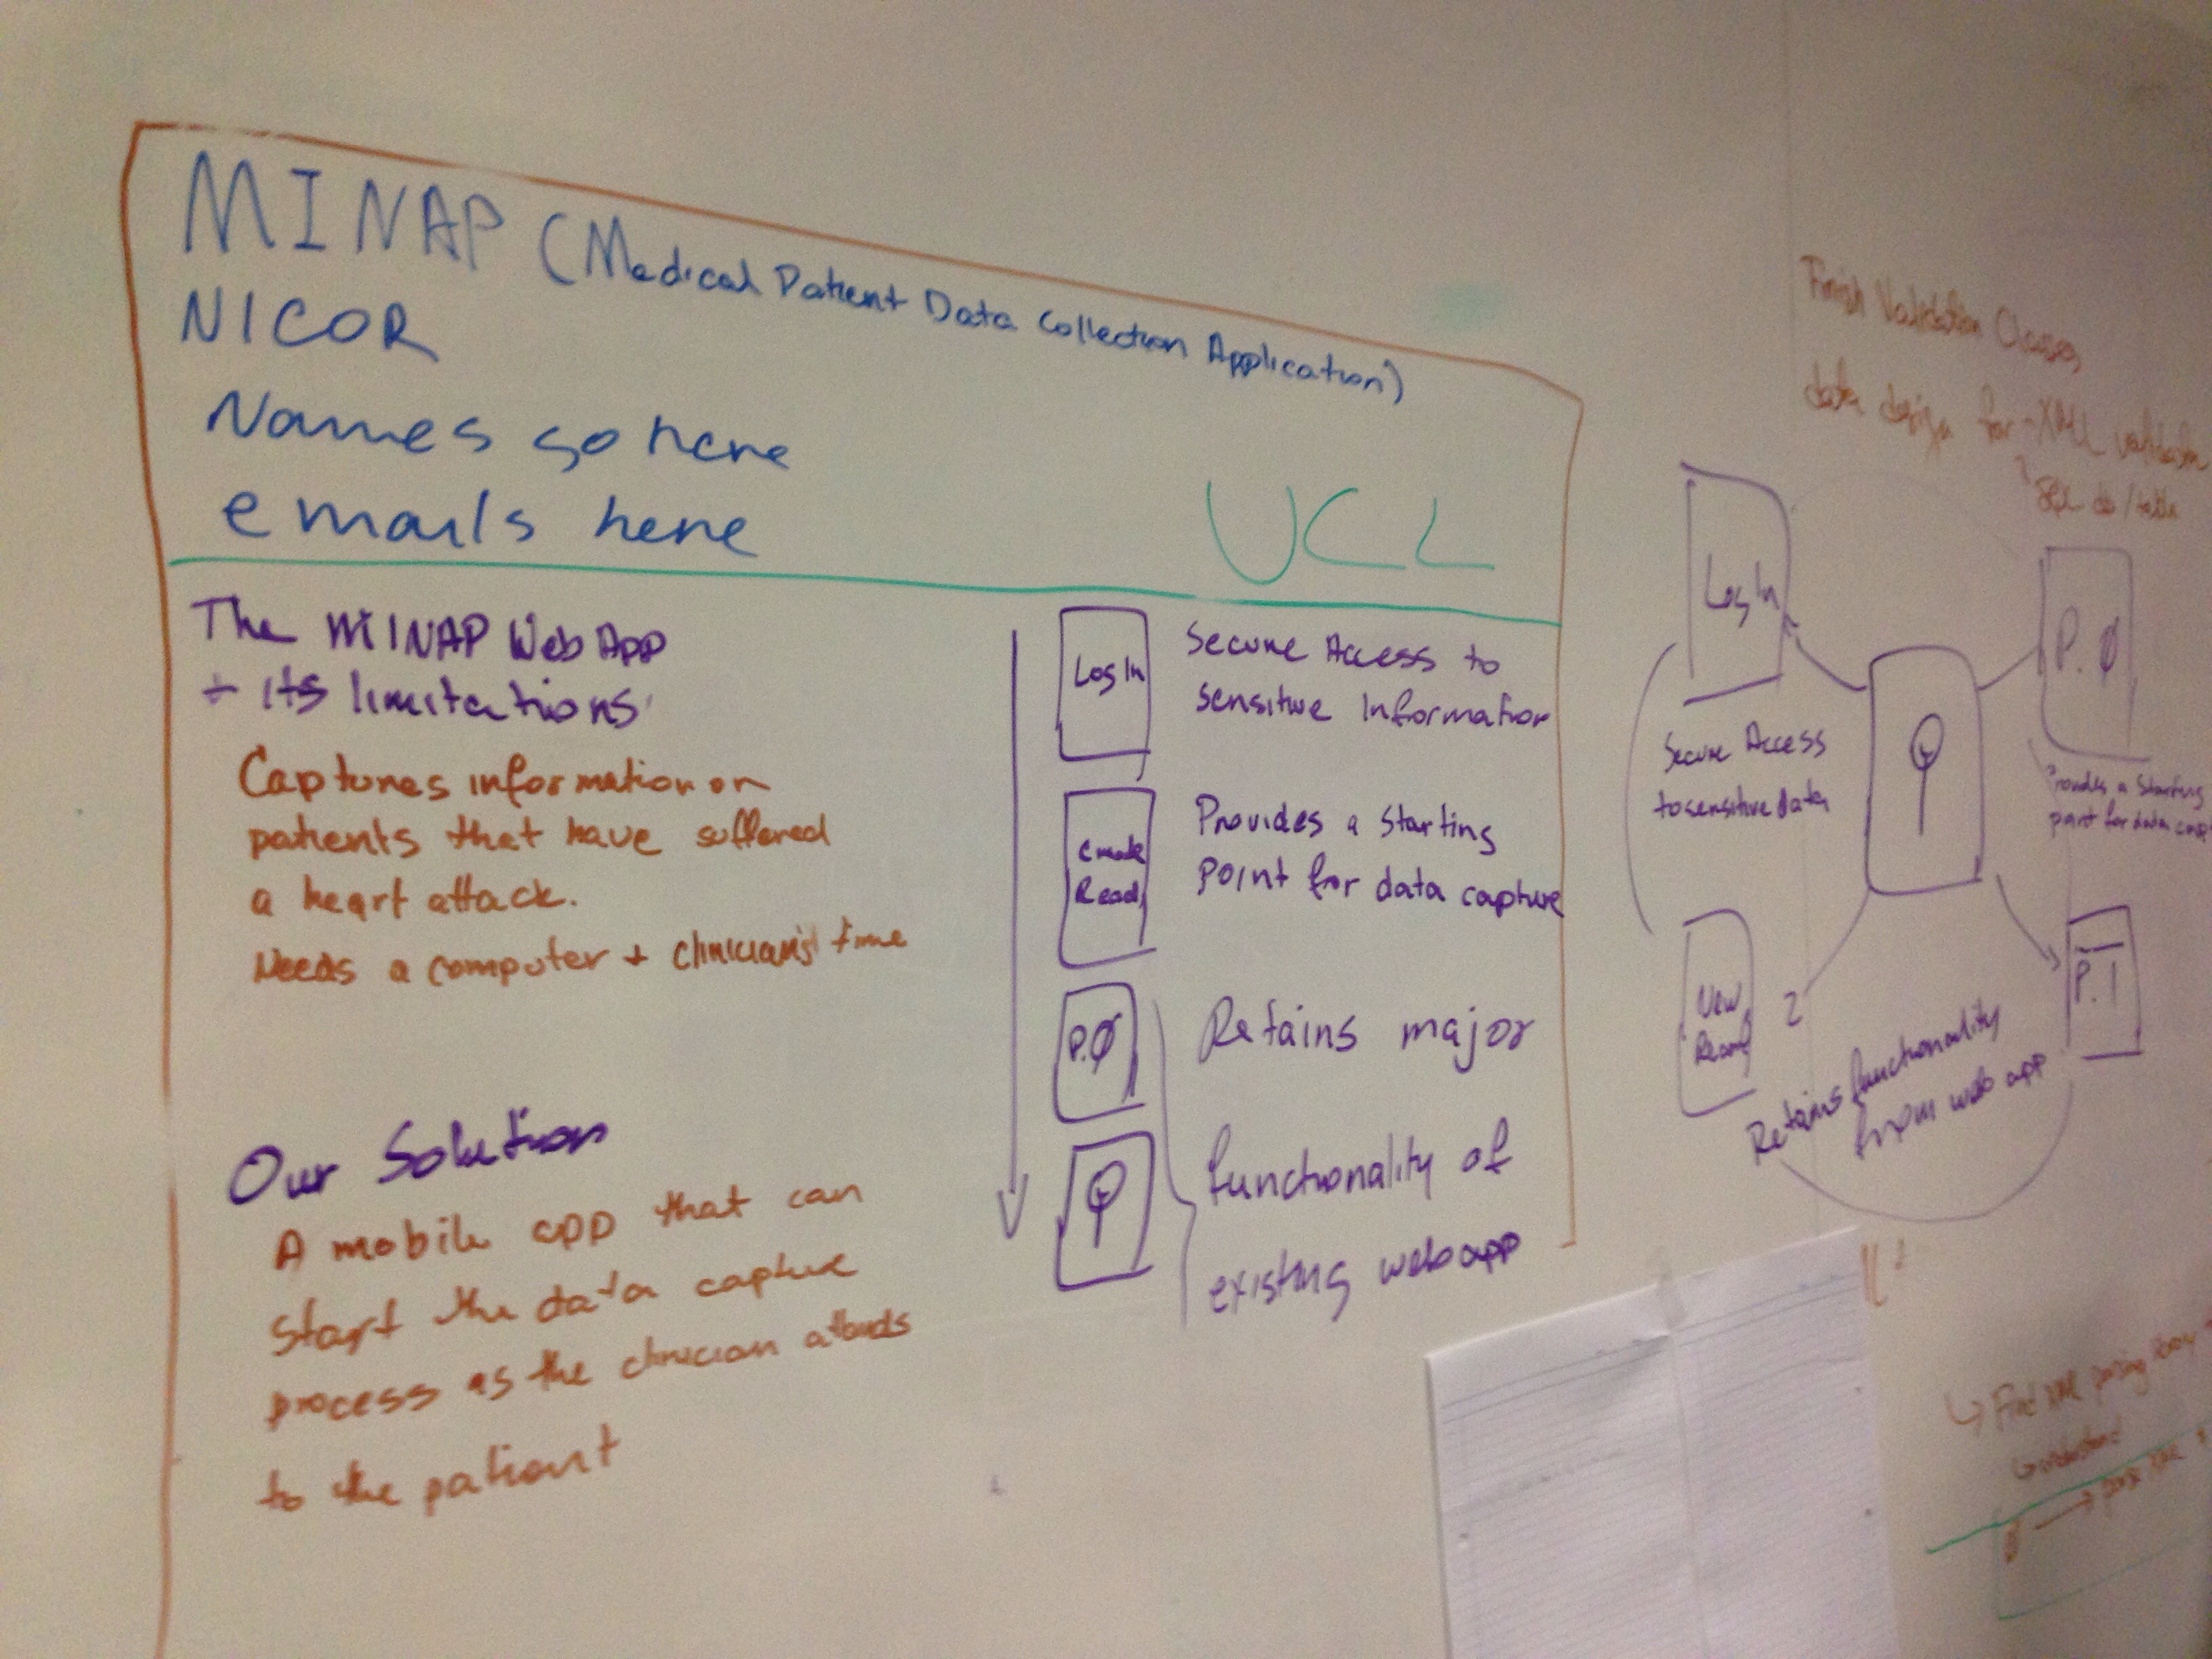 MINAP (Medical Patient Data Collection Application)
NICOR
Names go here
emails here
UCL
The MINAP Web App
+ its limitations
Captures information on
patients that have suffered
a heart attack.
Needs a computer + clinician's time
Our Solution
A mobile app that can
start the data capture
process as the clinician attends
to the patient
Log In
Secure Access to
sensitive Information
Create
Read
Provides a starting
point for data capture
P.Ø
Retains major
functionality of
existing web app
Finish Validation Classes
data design for - XML validation
SQL db/table
Log In
Secure Access
to sensitive data
P.Ø
Provides a starting
part for data
View
P.1
Retains functionality
from web app
Find XML parsing
understand
parse XML